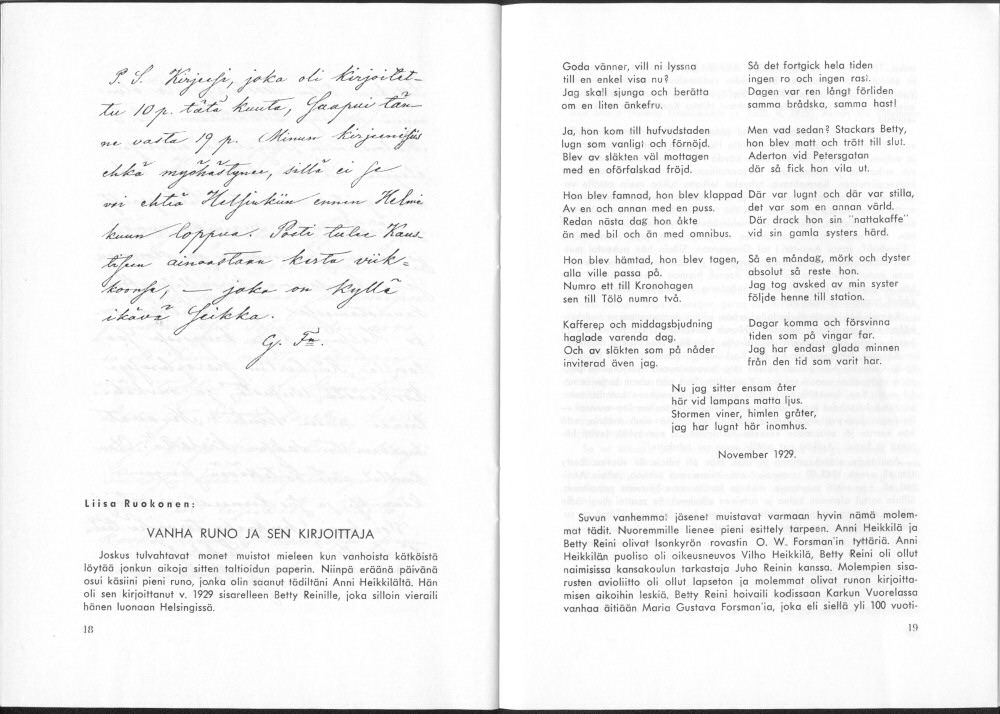 P. S. Kirjeesi, joka oli kirjoitet-
tu 10 p. tätä kuuta, saapui tän-
ne vasta 19 p. Minun kirjeenikin
ehkä myöhästynee, sillä ei se
voi ehtiä Helsinkiin ennen Helmi
kuun loppua. Posti tulee Kaus-
tiseen ainoastaan kerta viik-
koonsa, — joka on kyllä
ikävä seikka.
G. Fn.
Liisa Ruokonen:
VANHA RUNO JA SEN KIRJOITTAJA
Joskus tulvahtavat monet muistot mieleen kun vanhoista kätköistä
löytää jonkun aikoja sitten taltioidun paperin. Niinpä eräänä päivänä
osui käsiini pieni runo, jonka olin saanut tädiltäni Anni Heikkilältä. Hän
oli sen kirjoittanut v. 1929 sisarelleen Betty Reinille, joka silloin vieraili
hänen luonaan Helsingissä.
18
Goda vänner, vill ni lyssna
till en enkel visa nu?
Jag skall sjunga och berätta
om en liten änkefru.
Ja, hon kom till hufvudstaden
lugn som vanligt och förnöjd.
Blev av släkten väl mottagen
med en oförfalskad fröjd.
Hon blev famnad, hon blev klappad
Av en och annan med en puss.
Redan nästa dag hon åkte
än med bil och än med omnibus.
Hon blev hämtad, hon blev tagen,
alla ville passa på.
Numro ett till Kronohagen
sen till Tölö numro två.
Kafferep och middagsbjudning
haglade varenda dag.
Och av släkten som på nåder
inviterad även jag.
Så det fortgick hela tiden
ingen ro och ingen rast.
Dagen var ren långt förliden
samma brådska, samma hast!
Men vad sedan? Stackars Betty,
hon blev matt och trött till slut.
Aderton vid Petersgatan
där så fick hon vila ut.
Där var lugnt och där var stilla,
det var som en annan värld.
Där drack hon sin "nattakaffe"
vid sin gamla systers härd.
Så en måndag, mörk och dyster
absolut så reste hon.
Jag tog avsked av min syster
följde henne till station.
Dagar komma och försvinna
tiden som på vingar far.
Jag har endast glada minnen
från den tid som varit har.
Nu jag sitter ensam åter
här vid lampans matta ljus.
Stormen viner, himlen gråter,
jag har lugnt här inomhus.
November 1929.
Suvun vanhemmat jäsenet muistavat varmaan hyvin nämä molem-
mat tädit. Nuoremmille lienee pieni esittely tarpeen. Anni Heikkilä ja
Betty Reini olivat Isonkyrön rovastin O. W. Forsman'in tyttäriä. Anni
Heikkilän puoliso oli oikeusneuvos Vilho Heikkilä, Betty Reini oli ollut
naimisissa kansakoulun tarkastaja Juho Reinin kanssa. Molempien sisa-
rusten avioliitto oli ollut lapseton ja molemmat olivat runon kirjoitta-
misen aikoihin leskiä. Betty Reini hoivaili kodissaan Karkun Vuorelassa
vanhaa äitiään Maria Gustava Forsman'ia, joka eli siellä yli 100 vuoti-
19